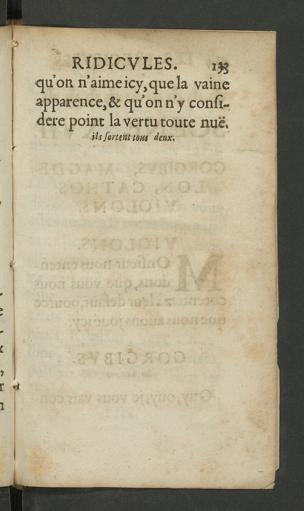 RIDICVLES. 133
qu'on n'aime icy, que la vaine
apparence, & qu'on n'y consi-
dere point la vertu toute nuë.
ils sortent tous deux.